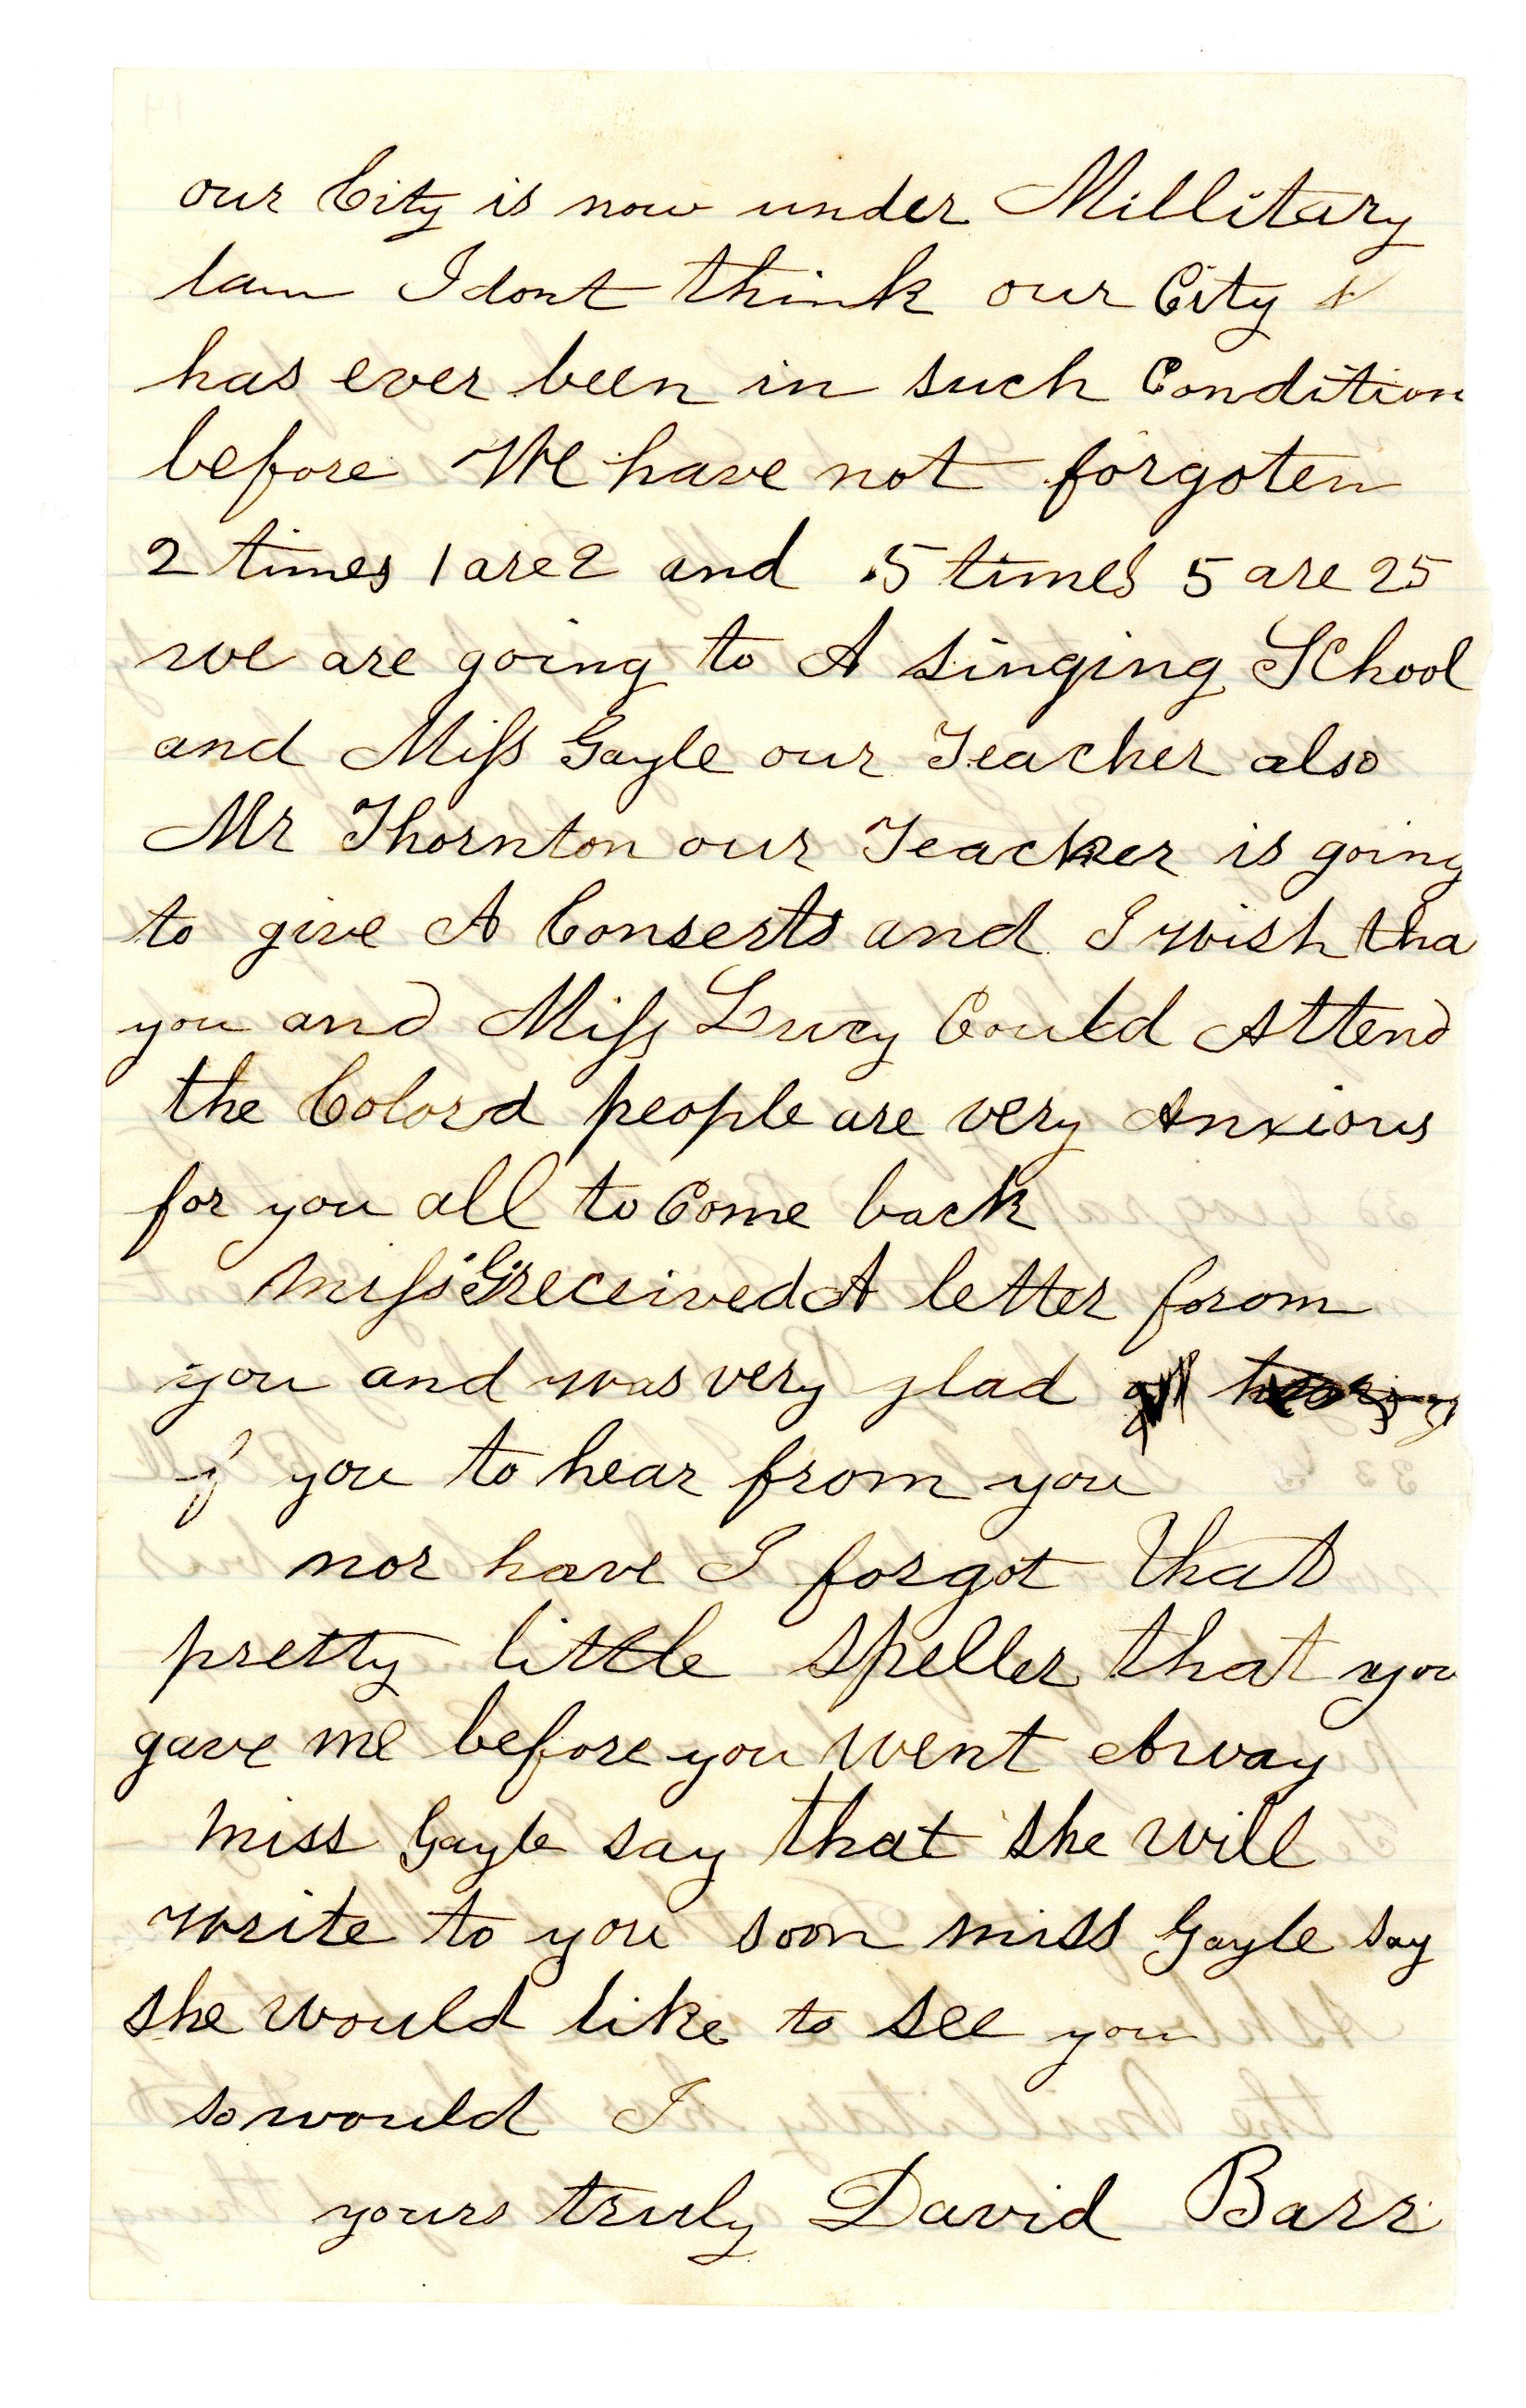 our City is now under Millitary
law I dont think our City
has ever been in such Condition
before We have not forgoten
2 times 1 are 2 and 5 times 5 are 25
we are going to A singing School
and Miss Gayle our Teacher also
Mr Thornton our Teacher is going
to give A Conserts and I wish tha
you and Miss Lucy Could Attend
the Colord people are very Anxious
for you all to Come back
miss G. received A letter forom
you and was very glad hearing
of you to hear from you
nor have I forgot that
pretty little speller that you
gave me before you went Away
miss Gayle say that she will
write to you soon miss Gayle say
she would like to see you
so would I
yours truly David Barr